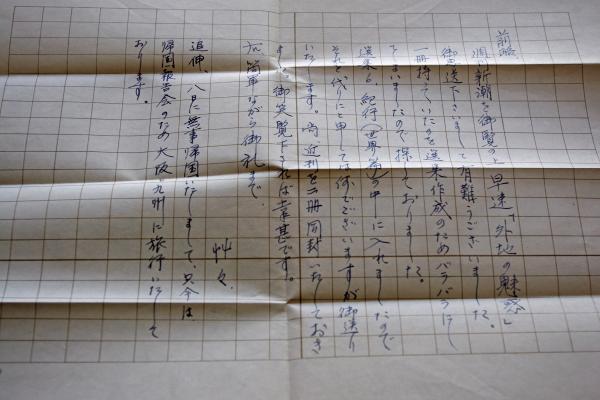 前略 週刊新潮を御覧の上、早速「外地の魅惑」
御恵送下さいまして有難うございました。
一冊持っていたのを選集作成のためバラバラにし
てしまいましたので探しておりました。
選集6、紀行(世界篇)の中に入れましたので
それを代りにと申しては何でございますが御送り
いたします。尚近刊を二冊同封いたしておき
ます。御笑覧下されば幸甚です。
右簡単ながら御礼まで。
草々
追伸、八月に無事帰国いたしまして、只今は
帰国報告会のため大阪九州に旅行いたして
おります。